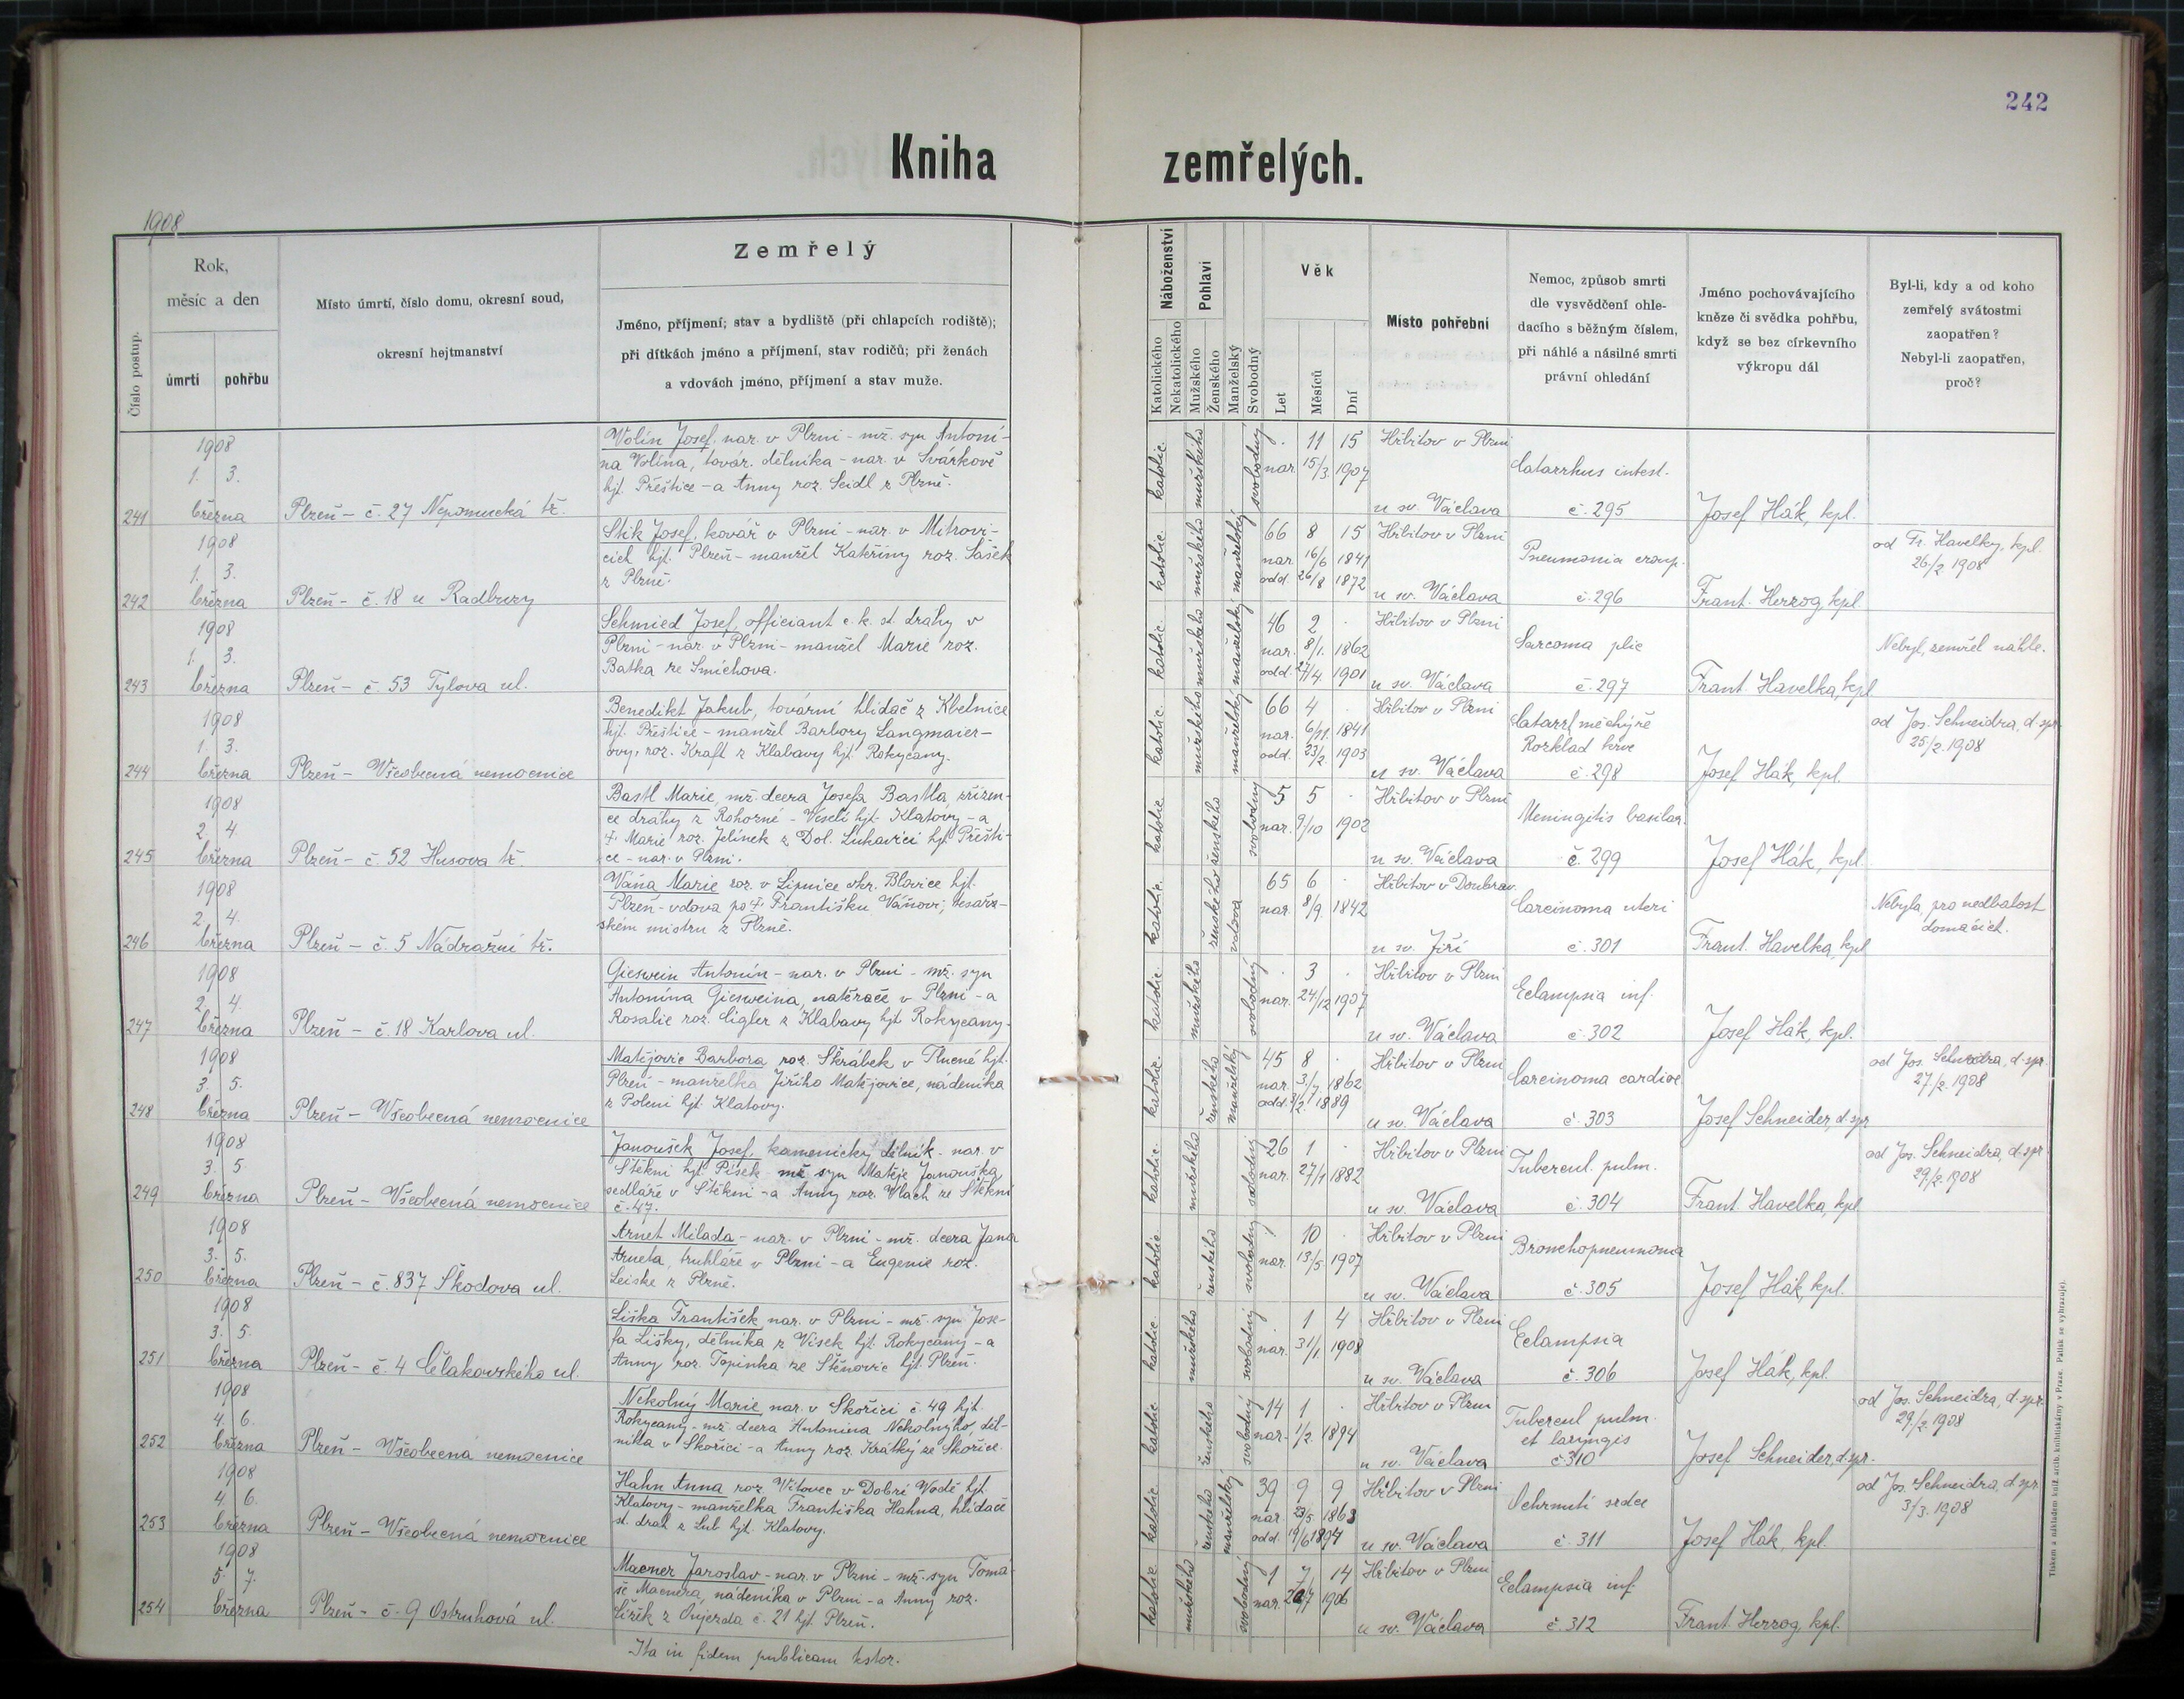 242
Kniha zemřelých.
1908
Číslo postup.
Rok,
měsíc a den
úmrtí
pohřbu
Místo úmrtí, číslo domu, okresní soud,
okresní hejtmanství
Zemřelý
Jméno, příjmení; stav a bydliště (při chlapcích rodiště);
při dítkách jméno a příjmení, stav rodičů; při ženách
a vdovách jméno, příjmení a stav muže.
Náboženství
Katolického
Nekatolického
Pohlaví
Mužského
Ženského
Manželský
Svobodný
Věk
Let
Měsíců
Dní
Místo pohřební
Nemoc, způsob smrti
dle vysvědčení ohle-
dacího s běžným číslem,
při náhlé a násilné smrti
právní ohledání
Jméno pochovávajícího
kněze či svědka pohřbu,
když se bez církevního
výkropu dál
Byl-li, kdy a od koho
zemřelý svátostmi
zaopatřen?
Nebyl-li zaopatřen,
proč?
241
1908
1. 3.
března
Plzeň - č. 27 Nepomucká tř.
Wolín Josef, nar. v Plzni - mž. syn Antoní-
na Volína, továr. dělníka - nar. v Svárkově
hjt. Přeštice - a Anny roz. Seidl z Plzně.
katolic. mužského svobodný
. 11 15
nar. 15/3. 1907
Hřbitov v Plzni
u sv. Václava
Catarrhus intest.
č. 295
Josef Hák, kpl.
242
1908
1. 3.
března
Plzeň - č. 18 u Radbuzy
Stik Josef, kovář v Plzni - nar. v Mitrovi-
cích hjt. Plzeň - manžel Kateřiny roz. Sašek
z Plzně.
katolic. mužského manželský
66 8 15
nar. 16/6 1841
odd. 26/8 1872
Hřbitov v Plzni
u sv. Václava
Pneumonia croup.
č. 296
Frant. Herzog, kpl.
od Fr. Havelky, kpl.
26/2 1908
243
1908
1. 3.
března
Plzeň - č. 53 Tylova ul.
Schmied Josef, officiant c. k. st. dráhy v
Plzni - nar. v Plzni - manžel Marie roz.
Batka ze Smíchova.
katolic. mužského manželský
46 2 .
nar. 8/1. 1862
odd. 27/4. 1901
Hřbitov v Plzni
u sv. Václava
Sarcoma plic
č. 297
Frant. Havelka, kpl
Nebyl, zemřel náhle.
244
1908
1. 3.
března
Plzeň - Všeobecná nemocnice
Benedikt Jakub, tovární hlídač z Kbelnice
hjt. Přeštice - manžel Barbory Langmaier-
ovy, roz. Kraft z Klabavy hjt. Rokycany.
katolic. mužského manželský
66 4 .
nar. 6/11. 1841
odd. 23/2. 1903
Hřbitov v Plzni
u sv. Václava
Catarrh měchýře
Rozklad krve
č. 298
Josef Hák, kpl.
od Jos. Schneidra, d. spr.
25/2. 1908
245
1908
2. 4.
března
Plzeň - č. 52 Husova tř.
Bastl Marie, mž. dcera Josefa Bastla, zřízen-
ce dráhy z Rohozné - Veselí hjt. Klatovy - a
† Marie roz. Jelínek z Dol. Luhavici hjt. Přešti-
ce - nar. v Plzni.
katolic. ženského svobodný
5 5 .
nar. 9/10 1902
Hřbitov v Plzni
u sv. Václava
Meningitis basilar.
č. 299
Josef Hák, kpl.
246
1908
2. 4.
března
Plzeň - č. 5 Nádražní tř.
Váňa Marie roz. v Lipnice okr. Blovice hjt.
Plzeň - vdova po † Františku Váňovi, tesařs-
kém mistru z Plzně.
katolic. ženského vdova
65 6 .
nar. 8/9. 1842
Hřbitov v Doubrav.
u sv. Jiří
Carcinoma uteri
č. 301
Frant. Havelka, kpl
Nebyla, pro nedbalost
domácích.
247
1908
2. 4.
března
Plzeň - č. 18 Karlova ul.
Gieswein Antonín - nar. v Plzni - mž. syn
Antonína Giesweina, natěrače v Plzni - a
Rosalie roz. Cigler z Klabavy hjt. Rokycany.
katolic. mužského svobodný
. 3 .
nar. 24/12 1907
Hřbitov v Plzni
u sv. Václava
Eclampsia inf.
č. 302
Josef Hák, kpl.
248
1908
3. 5.
března
Plzeň - Všeobecná nemocnice
Matějovic Barbora roz. Škrábek v Tlucné hjt.
Plzeň - manželka Jiřího Matějovice, nádeníka
z Poleni hjt. Klatovy.
katolic. ženského manželský
45 8 .
nar. 3./7 1862
odd. 3/2. 1889
Hřbitov v Plzni
u sv. Václava
Carcinoma cardiae
č. 303
Josef Schneider, d. spr
od Jos. Schneidra, d. spr.
27/2. 1908
249
1908
3. 5.
března
Plzeň - Všeobecná nemocnice
Janoušek Josef, kamenický dělník - nar. v
Štěkni hjt. Písek - mž. syn Matěje Janouška,
sedláře v Štěkni - a Anny roz. Vlach ze Štěkni
č. 47.
katolic. mužského svobodný
26 1 .
nar. 27/1 1882
Hřbitov v Plzni
u sv. Václava
Tubercul. pulm.
č. 304
Frant. Havelka, kpl
od Jos. Schneidra, d. spr
29/2. 1908
250
1908
3. 5.
března
Plzeň - č. 837 Škodova ul.
Arnet Milada - nar. v Plzni - mž. dcera Jana
Arneta, truhláře v Plzni - a Eugenie roz.
Leiske z Plzně.
katolic. ženského svobodný
. 10 .
nar. 13/5 1907
Hřbitov v Plzni
u sv. Václava
Bronchopneumonia
č. 305
Josef Hák, kpl.
251
1908
3. 5.
března
Plzeň - č. 4 Čelakovského ul.
Liška František nar. v Plzni - mž. syn Jose-
fa Lišky, dělníka z Vísek hjt. Rokycany - a
Anny roz. Topinka ze Štěnovic hjt. Plzeň.
katolic. mužského svobodný
1 4
nar. 31/1 1908
Hřbitov v Plzni
u sv. Václava
Eclampsia
č. 306
Josef Hák, kpl.
252
1908
4. 6.
března
Plzeň - Všeobecná nemocnice
Nekolný Marie nar. v Skořici č. 49 hjt.
Rokycany - mž. dcera Antonína Nekolnýho, děl-
níka v Skořici - a Anny roz. Krátký ze Skořice.
katolic. ženského svobodný
14 1 .
nar. 1/2. 1894
Hřbitov v Plzni
u sv. Václava
Tubercul pulm.
et laryngis
č. 310
Josef Schneider, d. spr.
od Jos. Schneidra, d. spr
29./2. 1908
253
1908
4. 6.
března
Plzeň - Všeobecná nemocnice
Hahn Anna roz. Vítovec v Dobré Vodě hjt.
Klatovy - manželka Františka Hahna, hlídače
st. drah z Lub hjt. Klatovy.
katolic. ženského manželský
39 9 9
nar. 23/5. 1868
odd. 19/6 1894
Hřbitov v Plzni
u sv. Václava
Ochrnutí srdce
č. 311
Josef Hák, kpl.
od Jos. Schneidra, d. spr
3/3. 1908
254
1908
5. 7.
března
Plzeň - č. 9 Ostruhová ul.
Macner Jaroslav - nar. v Plzni - mž. syn Tomá-
še Macnera, nádeníka v Plzni - a Anny roz.
Čížek z Oujezda č. 21 hjt. Plzeň.
katolic. mužského svobodný
1 7 14
nar. 20/7 1906
Hřbitov v Plzni
u sv. Václava
Eclampsia inf.
č. 312
Frant. Herzog, kpl.
Ita in fidem publicam testor.
Tiskem a nákladem kníž. arcib. knihtiskárny v Praze. Patisk se vyhrazuje.